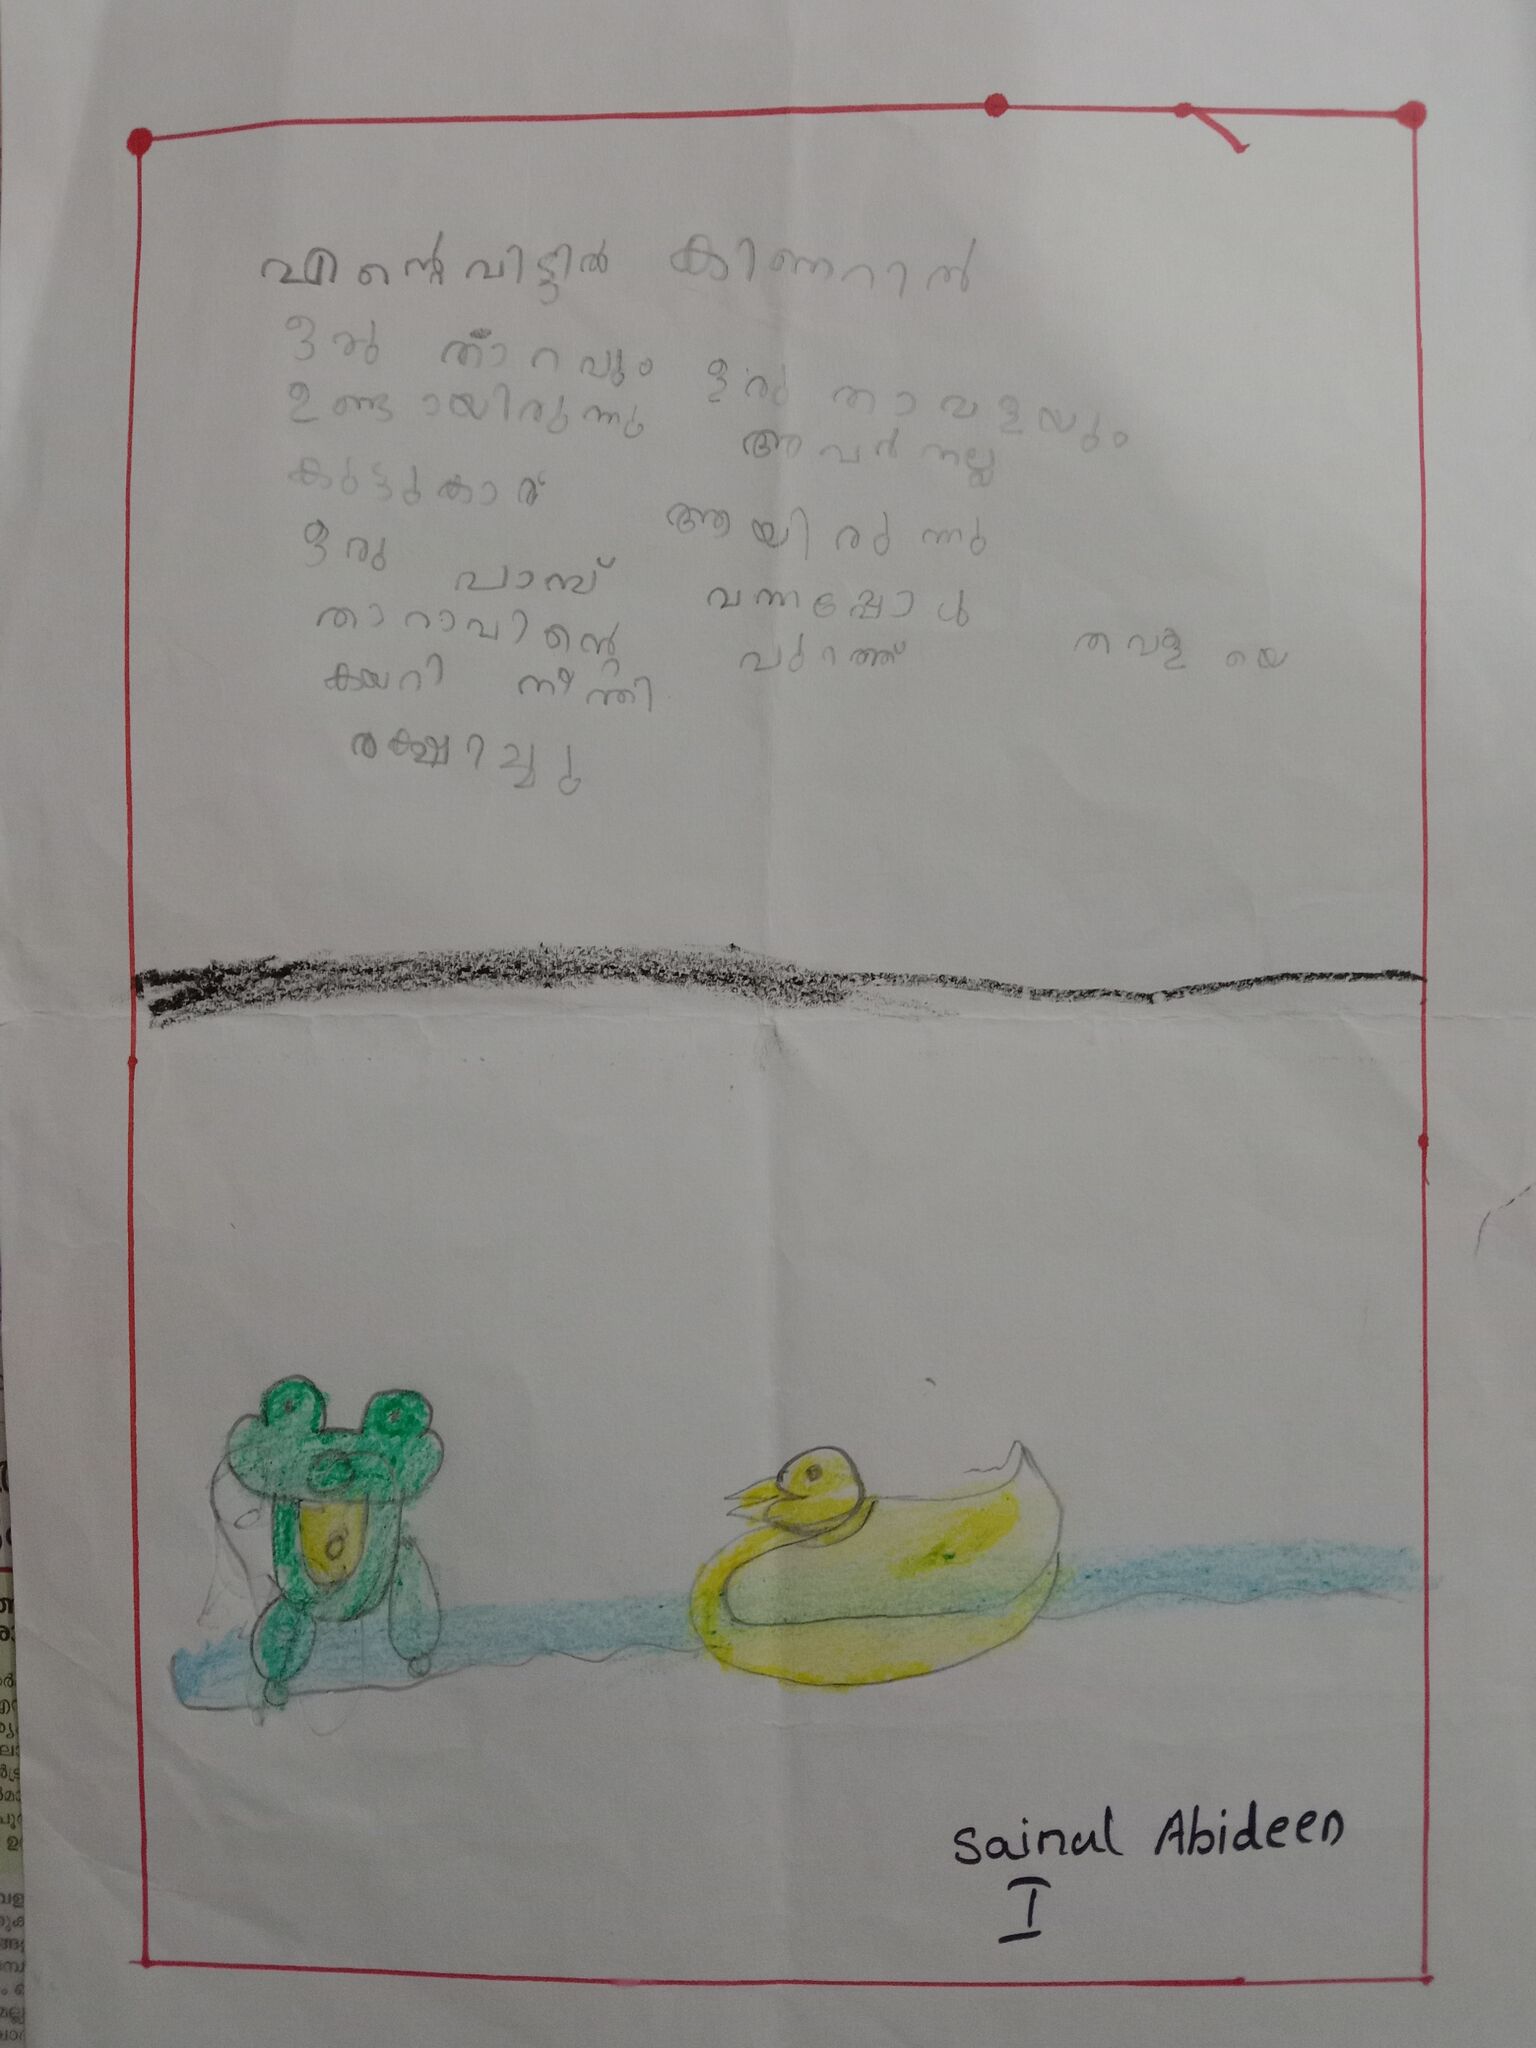 എന്റെ വിട്ടിൽ കിണറിൽ
ഒരു താറവും ഒരു താവളയും
ഉണ്ടായിരുന്നു അവർ നല്ല
കുട്ടുകാര് ആയിരുന്നു
ഒരു പാമ്പ് വന്നപ്പോൾ
താറാവിന്റെ പുറത്ത് തവളയെ
കയറി നീന്തി
രക്ഷിച്ചു
Sainul Abideen
I